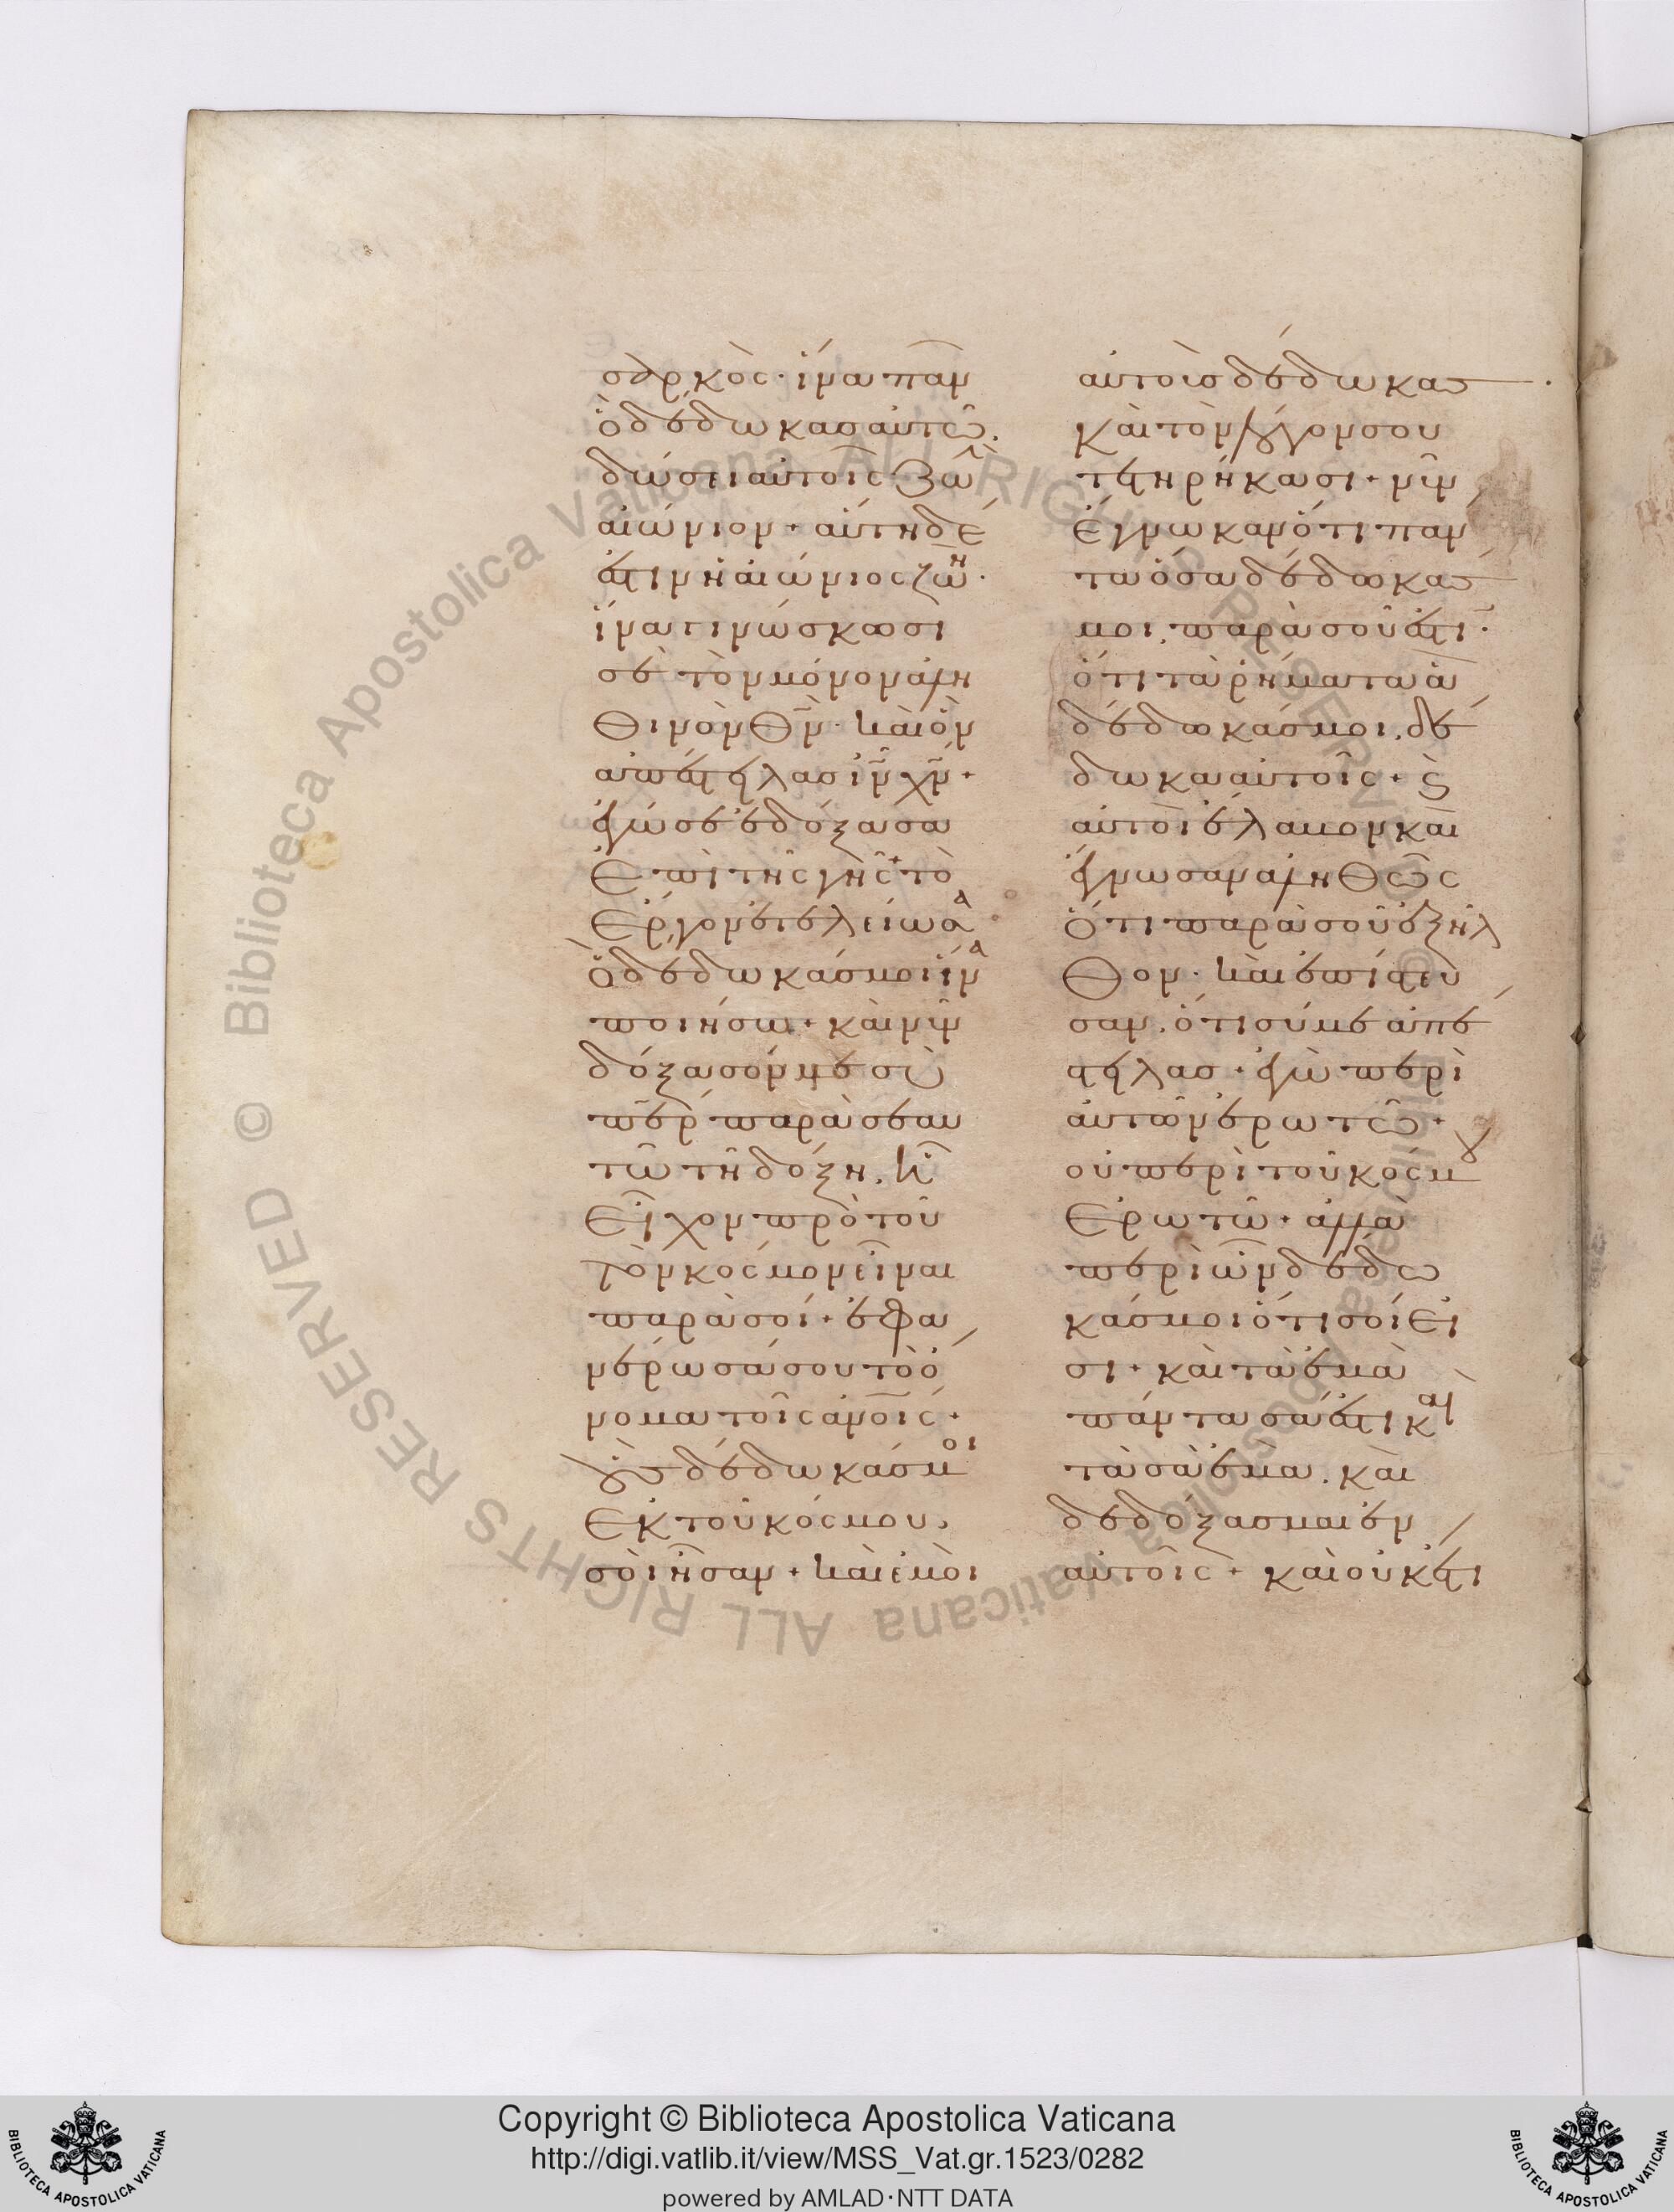 σαρκὸς· ἵνα πᾶν
ὃ δέδωκας αὐτῶ.
δώσει αὐτοῖς ζωὴ̄
αἰώνιον + αὕτη δέ
ἐστιν ἡ αἰώνιος ζωή·
ἵνα γινώσκωσι
σὲ τὸν μόνον ἀλη
θινὸν θν̄· καὶ ὃν
ἀπέστειλας ιν̄ χν̄ +
ἐγώ σε ἐδόξασα
ἐπὶ τῆς γῆς + τὸ
ἔργον ἐτελείωσα
ὃ δέδωκάς μοι ἵνα
ποιήσω + καὶ νῦν
δόξασόν με σὺ
πε̄ρ παρὰ σεαυ
τῶ τῆ δόξη. ἧ
εἶχον πρὸ τοῦ
τὸν κόσμον εἶναι
παρὰ σοί + ἐφα
νέρωσά σου τὸ ὄ
νομα τοῖς ἀνοις +
οὓς δέδωκάς μοι
ἐκ τοῦ κόσμου,
σοὶ ἦσαν + καὶ ἐμοὶ
αὐτοὺς δέδωκας.
καὶ τὸν λόγον σου
τετηρήκασι + νῦν
ἔγνωκαν ὅτι πάν
τα ὅσα δέδωκάς
μοι, παρὰ σοῦ ἐστι·
ὅτι τὰ ῥήματα ἃ
δέδωκάς μοι, δέ
δωκα αὐτοῖς + ϗ
αὐτοὶ ἔλαβον καὶ
ἔγνωσαν ἀληθῶς
ὅτι παρὰ σοῦ ἐξῆλ
θον· καὶ ἐπίστευ
σαν, ὅτι σύ με ἀπέ
στειλας + ἐγὼ περὶ
αὐτῶν ἐρωτῶ +
οὐ περὶ τοῦ κόσμου
ἐρωτῶ + ἀλλὰ
περὶ ὧν δέδω
κάς μοι ὅτι σοί εἰ
σι + καὶ τὰ ἐμὰ
πάντα σά ἐστι καὶ
τὰ σὰ ἐμά. καὶ
δεδόξασμαι ἐν
αὐτοῖς + καὶ οὐκέτι
Copyright © Biblioteca Apostolica Vaticana
http://digi.vatlib.it/view/MSS_Vat.gr.1523/0282
powered by AMLAD·NTT DATA
BIBLIOTECA APOSTOLICA VATICANA
BIBLIOTECA APOSTOLICA VATICANA
© Biblioteca Apostolica Vaticana ALL RIGHTS RESERVED
© Biblioteca Apostolica Vaticana ALL RIGHTS RESERVED